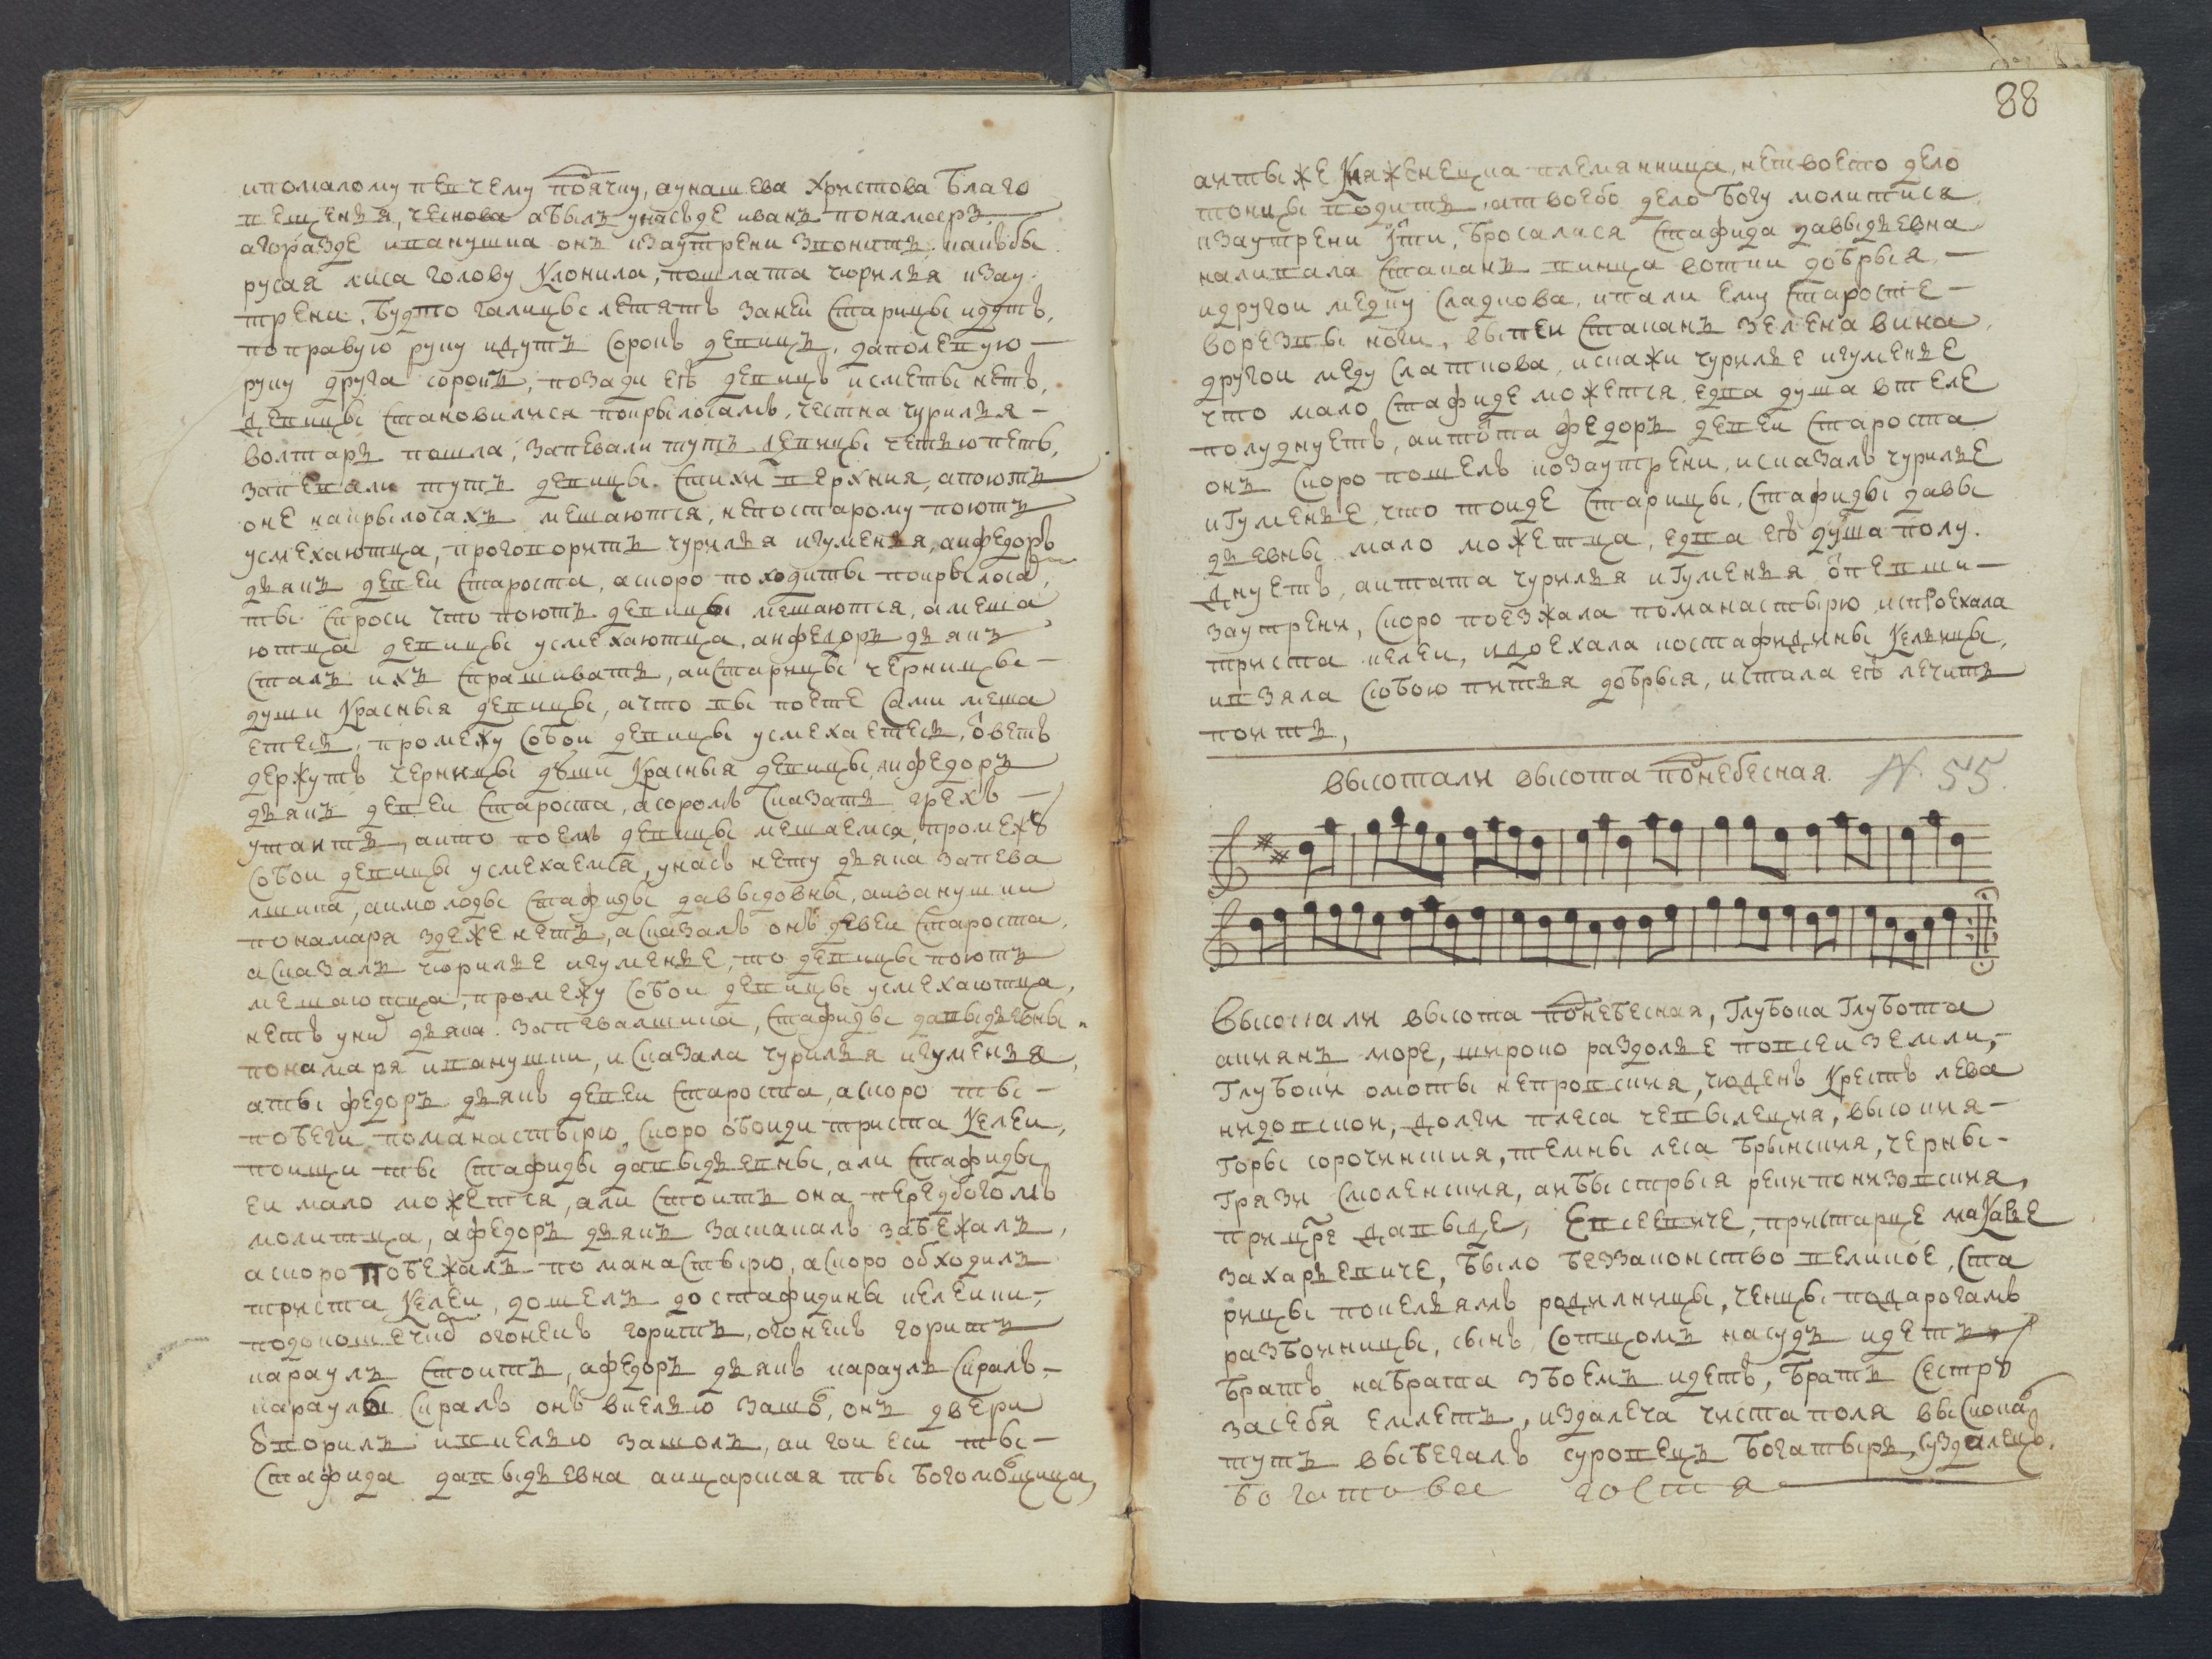 и помалому певчему поячку, а у нашева Христова благо
вещенья, чеснова а былъ у насъ де иванъ понамоеръ,
а горазде иванушка онъ к заутрени звонитъ, какъ бы
русая лиса голову клонила, пошла та чюрилья к зау
трени. будто галицы летятъ за неи старицы идутъ,
по правую руку идутъ сорокъ девицъ, да по левую
руку друга сорокъ, позади еѣ девицъ и сметы нетъ,
девицы становилися по крылосамъ, честна чурилья
волтарь пошла, запевали тутъ девицы четью петь,
запевали тутъ девицы стихи верхния, а поютъ
оне на крылосахъ мешаются, не по старому поютъ
усмехаютца, проговоритъ чурилья игуменья, аи федоръ
дьякъ девеи староста, а скоро походи ты по крылоса
ты спроси что поютъ девицы мешаются, а меша
ютца девицы усмехаютца, аи федоръ дьякъ
сталъ ихъ спрашивать, аи старицы черницы
души красныя девицы, а что вы поете сами меша
етесь, промежу собои девицы усмехаетесь, ответъ
держутъ черницы души красныя девицы, аи федоръ
дьякъ девеи староста, а соромъ сказать грехъ
утаить, аи то поемъ девицы мешаемся, промежу
собои девицы усмехаемся, у насъ нету дьяка запева
лшика, аи молоды стафиды давыдовны, а иванушки
понамаря зде же нетъ, а сказалъ онъ девеи староста,
а сказалъ чюрилье игуменье, то девицы поютъ
мешаютца, промежу собои девицы усмехаютца,
нетъ у них дьяка запевалшика, стафиды давыдьевны
понамаря иванушки, и сказала чурилья игуменья,
а ты федоръ дьякъ девеи староста, а скоро ты
побеги по манастырю, скоро обоиди триста келеи,
поищи ты стафиды давыдьевны, али стафиды
еи мало можется, али стоитъ она передъ богомъ
молитца, а федоръ дьякъ заскакалъ забежалъ,
а скоро побежалъ по манастырю, а скоро обходилъ
триста келеи, дошелъ до стафидины келеики,
под окошечкомъ огонекъ горитъ, огонекъ горитъ
караулъ стоитъ, а федоръ дьякъ караулъ скралъ,
караулы скралъ онъ в келью зашо, онъ двери
отворилъ и в келью зашолъ, аи гои еси ты
стафида давыдьевна аи царская ты богомолщица,
88
аи ты же княженецка племянница, не твое то дело
тонцы водить, а твое бо дело богу молитися
к заутрени итти, бросалася стафида давыдьевна
наливала стаканъ винца вотки добрыя,
и другои медку сладкова, и пали ему старосте
во резвы ноги, выпеи стаканъ зелена вина,
другои меду слаткова, и скажи чурилье игуменье
что мало стафиде можется, едва душа в теле
полуднуетъ, аи тота федоръ девеи староста
онъ скоро пошелъ ко заутрени, и сказалъ чурилье
игуменье, что тои де старицы, стафиды давы
дьевны мало можетца, едва еѣ душа полу
днуетъ, аи тата чурилья игуменья отпевши
заутрени, скоро поезжала по манастырю испроехала
триста келеи, и доехала ко стафидины кельицы,
и взяла с собою питья добрыя, и стала еѣ лечить
поить,
высотали высота поднебесная. N 55.
Высокали высота поднебесная, глубока глубота
акиянъ море, широко раздолье по всеи земли,
глубоки омоты непровския, чюденъ крестъ лева
нидовскои, долги плеса чевылецкия, высокия
горы сорочинския, темны леса брынския, черны
грязи смоленския, а и быстрыя реки понизовския,
при цре давыде, Евсеевиче, при старце макарье
захарьевиче, было беззаконство великое, ста
рицы по кельямъ родилницы, ченцы по дарогамъ
разбоиницы, сынъ с отцомъ на судъ идетъ,
братъ на брата з боемъ идетъ, братъ сестру
за себя емлетъ, из далеча чиста поля выскока
тутъ выбегалъ суровецъ богатырь, суздалецъ.
богатова гостя